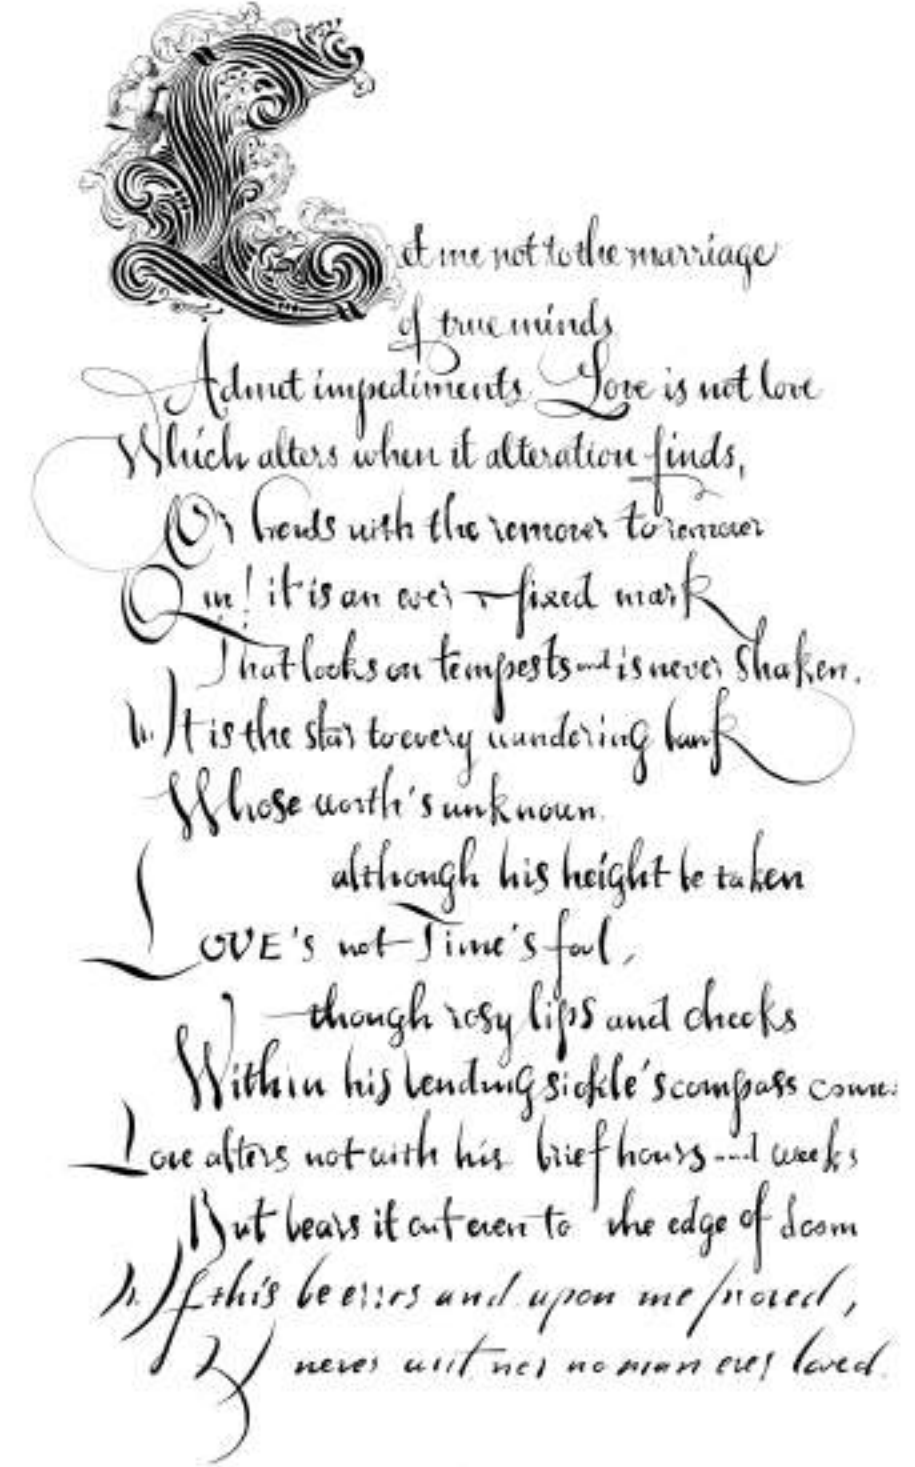 Let me not to the marriage
of true minds
Admit impediments Love is not love
Which alters when it alteration finds,
Or bends with the remover to remover
O no! it is an ever-fixed mark
That looks on tempests and is never shaken.
It is the star to every wandering bark
Whose worth's unknown.
although his height be taken
LOVE's not Time's fool,
though rosy lips and cheeks
Within his bending sickle's compass come:
Love alters not with his brief hours and weeks
But bears it out even to the edge of doom
If this be errors and upon me proved,
I never writ nor no man ever loved.